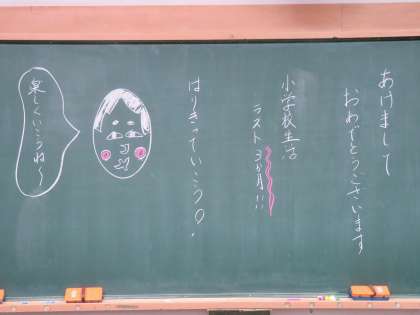 あけまして
おめでとうございます
小学校生活
ラスト3か月!!
はりきっていこう。
楽しくいこうね〜